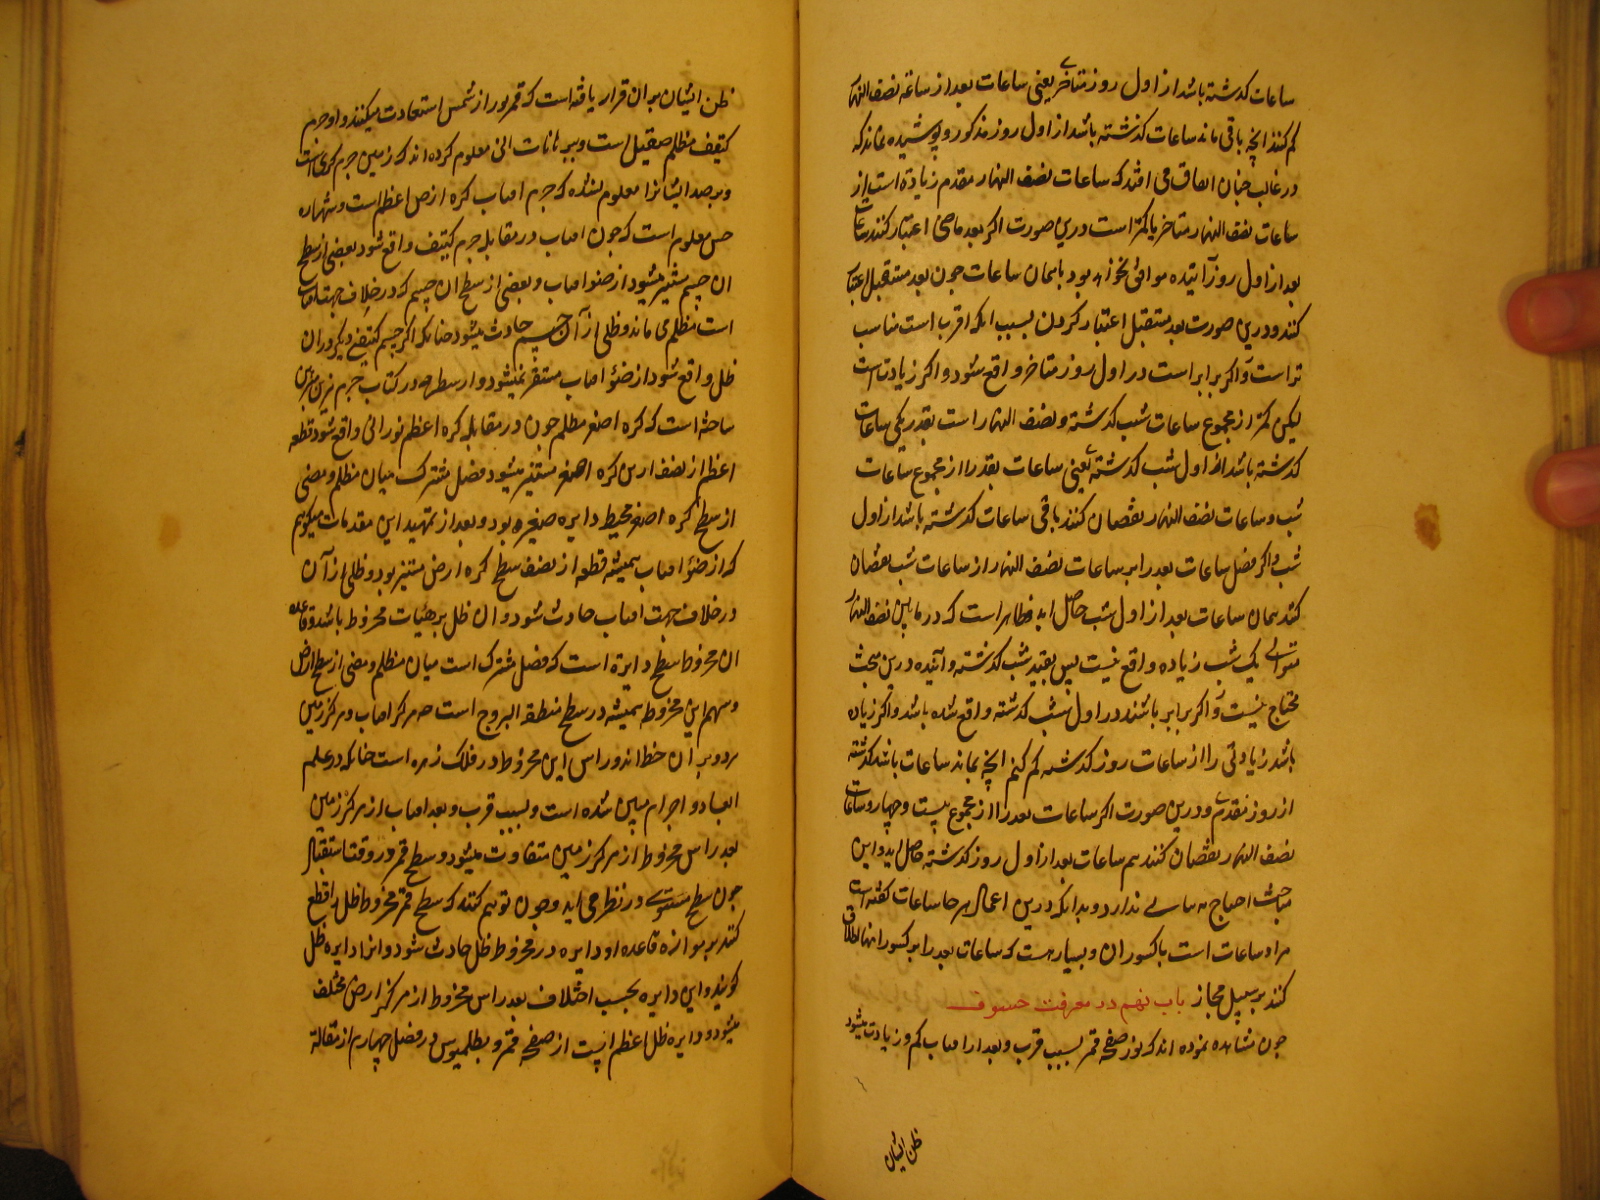 ساعات کدشته باشد از اول روز متاخر یعنی ساعات بعد از ساعة نصف النهار
کم کنند انچه باقی ماند ساعات کذشته باشد از اول روز مذکور و پوشیده نماند که
در غالب جنان اتفاق می افتد که ساعات نصف النهار مقدم زیادة است از
ساعات نصف النهار متاخر یا کمتر است و درین صورت اکر بعد ماضی اعتبار کنند ساعات
بعد از اول روز آینده موافق نخواهد بود با همان ساعات جون بعد مستقبل اعتبار
کنند و درین صورت بعد مستقبل اعتبار کردن بسبب انکه اقرب است مناسب
تر است و اکر برابر است در اول روز متاخر واقع شود و اکر زیادت است
لیکن کمتر از مجموع ساعات شب کدشته و نصف النهار است بقدر یکی ساعات
کدشته باشد از اول شب کدشته یعنی ساعات بعد را از مجموع ساعات
شب و ساعات نصف النهار نقصان کنند باقی ساعات کدشته باشد از اول
شب و اکر فضل ساعات بعد را بر ساعات نصف النهار از ساعات شب نقصان
کنند همان ساعات بعد از اول شب حاصل اید و ظاهر است که در مابین نصف النهار
متوالی یک شب زیاده واقع نیست پس بقید شب کدشته و آینده درین مبحث
محتاج نیست و اکر برابر باشند در اول شب کدشته واقع شده باشد و اکر زیاده
باشد زیادتی را از ساعات روز کدشته کم کنیم انچه بماند ساعات باشد کدشته
از روز متقدم و درین صورت اکر ساعات بعد را از مجموع بیست و چهار و ساعات
نصف النهار نقصان کنند هم ساعات بعد از اول روز کدشته حاصل اید و این
مباحث احتیاج به مثالی ندارد و بدانکه درین اعمال هر جا ساعات کفته است
مراد ساعات است با کسور ان و بسیار هست که ساعات بعد را بر کسور انها اطلاق
کنند بر سبیل مجاز باب نهم در معرفت خسوف
جون مشاهده نموده اند که نور صفحه قمر بسبب قرب و بعد از افتاب کم و زیادت میشود
ظن ایشان
ظن ایشان بر ان قرار یافته است که قمر نور از شمس استعادت میکنند و او جرم
کثیف مظلم صقیل است و ببرهانات انی معلوم کرده اند که زمین جرم کری است
و برصد ایشانرا معلوم شده که جرم افتاب کره از ارض اعظم است و بشهاده
حس معلوم است که جون افتاب در مقابله جرم کثیف واقع شود بعضی از سطح
ان جسم مستنیر میشود از ضوء افتاب و بعضی از سطح ان جسم که در خلاف جهت افتاب
است مظلم می ماند و ظلی از آن جسم حادث میشود جنانکه اکر جسم کثیفی دیکر در ان
ظل واقع شود از ضوء افتاب مستنیر نمیشود و ارسطرخس در کتاب جرم نیرین مبرهن
ساخته است که کره اصغر مظلم جون در مقابله کره اعظم نورانی واقع شود قطعه
اعظم از نصف ازین کره اصغر مستنیر میشود فصل مشترک میان مظلم و مضی
از سطح کره اصغر محیط دایره صغیره بود و بعد از تمهید این مقدمات میکوییم
که از ضوء افتاب همیشه قطعه از نصف سطح کره ارض مستنیر بود و ظلی از آن
در خلاف جهت افتاب حادث شود و ان ظل بر هئیات مخروط باشد و قاعده
ان مخروط سطح دایرة است که فصل مشترک است میان مظلم و مضی از سطح ارض
و سهم این مخروط همیشه در سطح منطقه البروج است جه مرکز افتاب و مرکز زمین
هر دو بر ان خط اند و راس این مخروط در فلک زهره است جنانکه در علم
ابعاد و اجرام مبین شده است و بسبب قرب و بعد افتاب از مرکز زمین
بعد راس مخروط از مرکز زمین متفاوت میشود و سطح قمر در وقت استقبال
جون سطح مستوی در نظر می اید و جون توهم کنند که سطح قمر مخروط ظل را قطع
کند بر موازه قاعده او دایره در مخروط ظل حادث شود و انرا دایره ظل
کویند و این دایره بحسب اختلاف بعد راس مخروط از مرکز ارض مختلف
میشود و دایره ظل اعظم است از صفحه قمر و بطلمیوس در فصل چهارم از مقالة